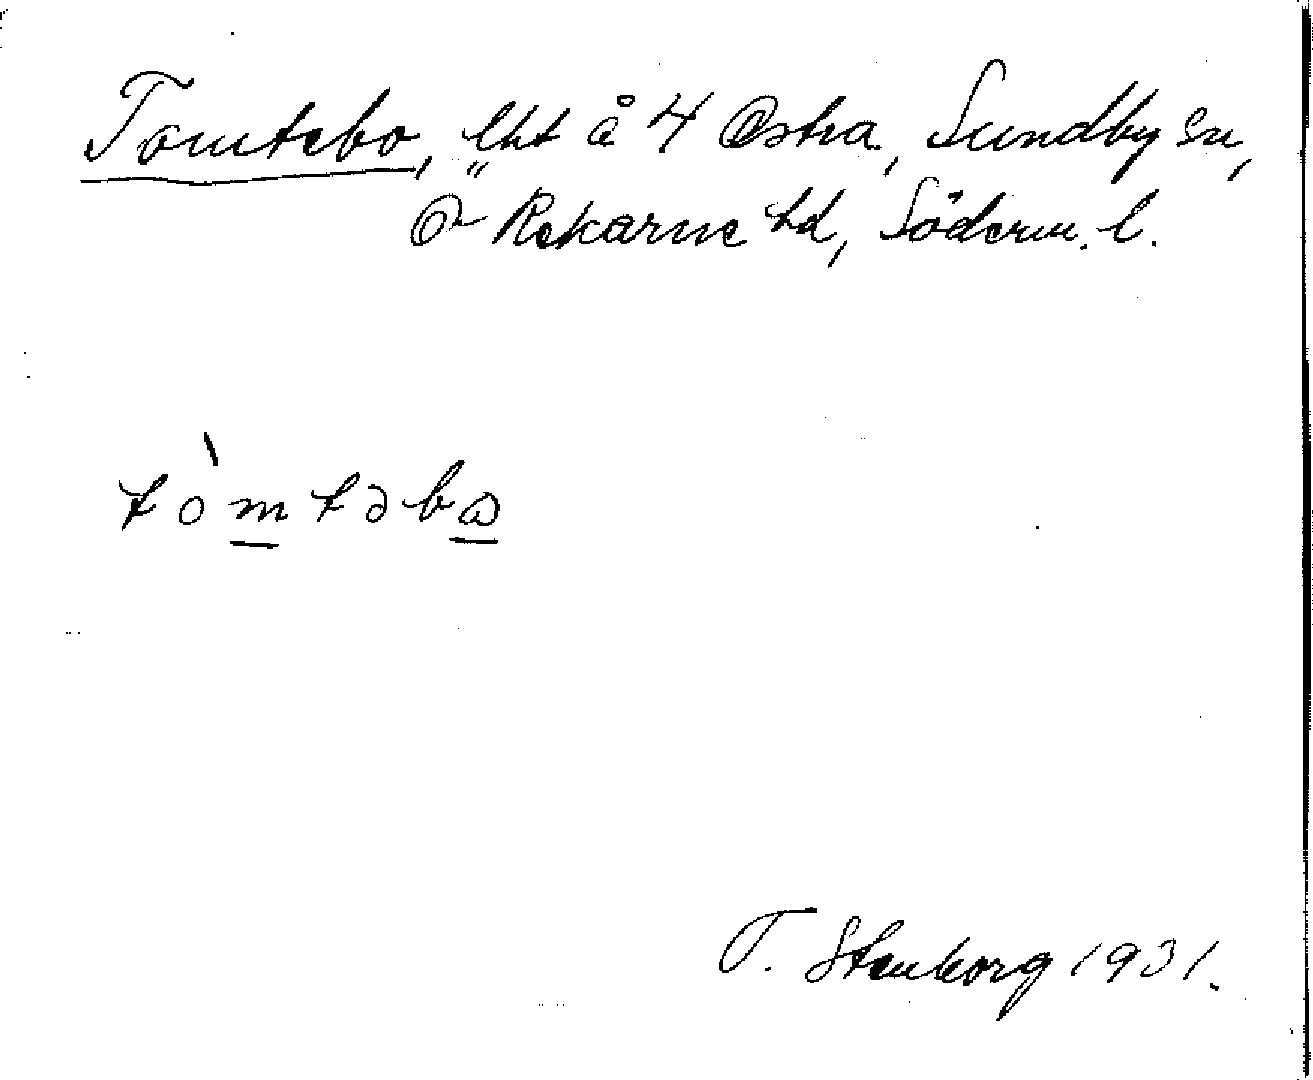 Tomtebo, lht å 4 Östra, Sundby sn,
Ö Rekarne hd, Söderm. l.
tòmtəbɷ
T. Stenborg 1931.